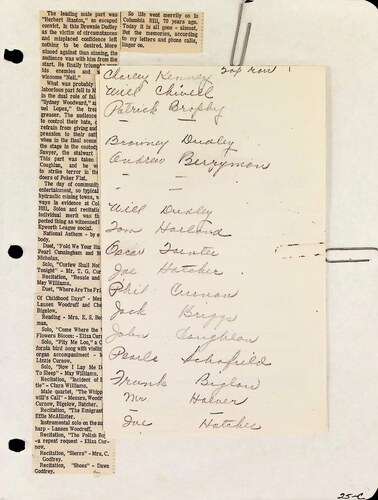 The leading male part was
"Herbert Stanton," an escaped
convict. In this Brownie Dudley
as the victim of circumstances
and misplaced confidence left
nothing to be desired. More
sinned against than sinning, the
audience was with him from the
start. He finally triumph
his enemies and
winsome "Nell."
What was probably
laborious part fell to M
in the dual role of fal
"Sydney Woodward," a
uel Lopes," the trea
greaser. The audience
to control their hate,
refrain from giving aud
pression to their outf
when in the final scene
the stage in the custody
Sawyer, the stalwart
This part was taken
Coughlan, and he w
to strike terror in the
doers of Poker Flat.
The day of community
entertainment, so typical
hydraulic mining towns, w
ways in evidence at Col
Hill. Solos and recitatio
Individual merit was the
perited thing as witnessed
Epworth League social.
National Anthem - by e
body.
Duet, "Fold We Your Ha
Pearl Cunningham and M
Nicholas.
Solo, "Curfew Shall Not
Tonight" - Mr. T. G. Cu
Recitation, "Bessie and
May Williams.
Duet, "Where Are the Fri
Of Childhood Days" - Mes
Lannes Woodruff and Che
Bigelow.
Reading - Mrs. E. S. Bo
man.
Solo, "Come Where the
Flowers Bloom" - Eliza Cur
Solo, "Pity Me Loo," a C
fornia bird song with violin
organ accompaniment - M
Lizzie Curnow.
Solo, "Now I Lay Me Do
To Sleep" - May Williams.
Recitation, "Incident of
tle" - Clara Williams.
Male quartet, "The Whipp
will's Call" - Messrs. Woodr
Curnow, Bigelow, Hatcher.
Recitation, "The Emigrant
Effie McAllister.
Instrumental solo on the m
harp - Lannes Woodruff.
Recitation, "The Polish Bo
-a repeat request - Eliza Cur-
now.
Recitation, "Sierra" - Mrs. C.
Godfrey.
Recitation, "Shoes" - Dawn
Godfrey.
So life went merrily on in
Columbia Hill, 70 years ago.
Today it is all gone - almost.
But the memories, according
to my letters and phone calls,
linger on.
Top row
Charley Kenney
Will Chivell
Patrick Brophy
Browney Dudley
Andrew Berryman
Will Dudley
Tom Harland
Oscar Tainter
Joe Hatcher
Phil Curnow
Jack Briggs
John Coughlan
Pearle Schofield
Frank Biglow
Mr Hoover
Joe Hatcher
25-C